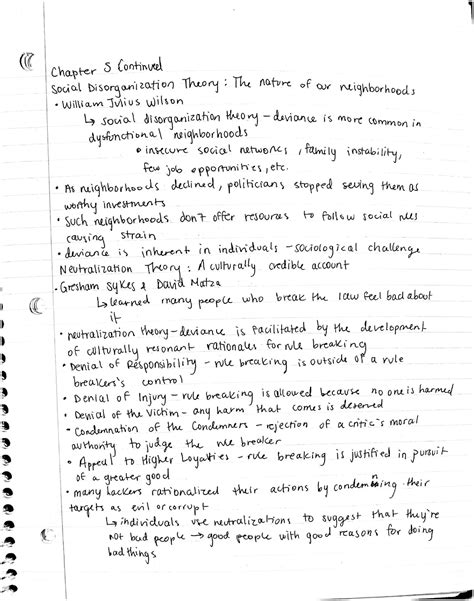 Chapter 5 Continued
Social Disorganization Theory: The nature of our neighborhoods
• William Julius Wilson
↳ social disorganization theory - deviance is more common in
dysfunctional neighborhoods
• insecure social networks, family instability,
few job opportunities, etc.
• As neighborhoods declined, politicians stopped seeing them as
worthy investments
• Such neighborhoods don't offer resources to follow social rules
causing strain
• deviance is inherent in individuals - sociological challenge
Neutralization Theory: A culturally credible account
• Gresham Sykes & David Matza
↳ learned many people who break the law feel bad about
it
• neutralization theory - deviance is facilitated by the development
of culturally resonant rationales for rule breaking
• Denial of Responsibility - rule breaking is outside of a rule
breakers's control
• Denial of Injury - rule breaking is allowed because no one is harmed
• Denial of the Victim - any harm that comes is deserved
• Condemnation of the Condemners - rejection of a critic's moral
authority to judge the rule breaker
• Appeal to Higher Loyalties - rule breaking is justified in pursuit
of a greater good
• many hackers rationalized their actions by condemning their
targets as evil or corrupt
↳ individuals use neutralizations to suggest that they're
not bad people → good people with good reasons for doing
bad things